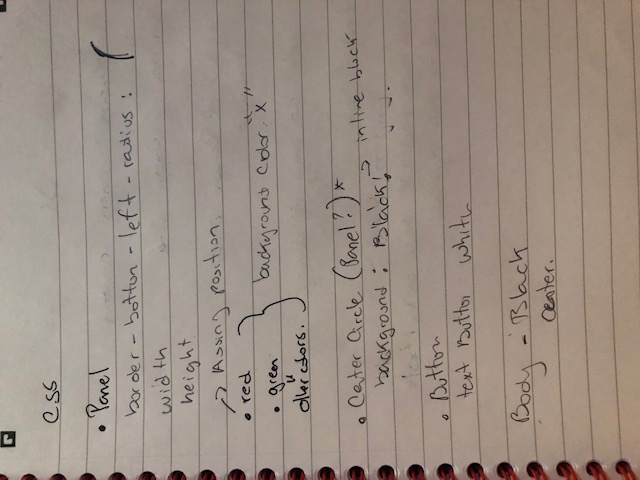 CSS
• Panel
border - botton - left - radius : (
width
height
-> Assing position.
• red
• green
other colors.
} background color: "x"
• Center Circle (Panel?)*
background : Black! -> inline block
• Button
text Button White
Body - Black
center.